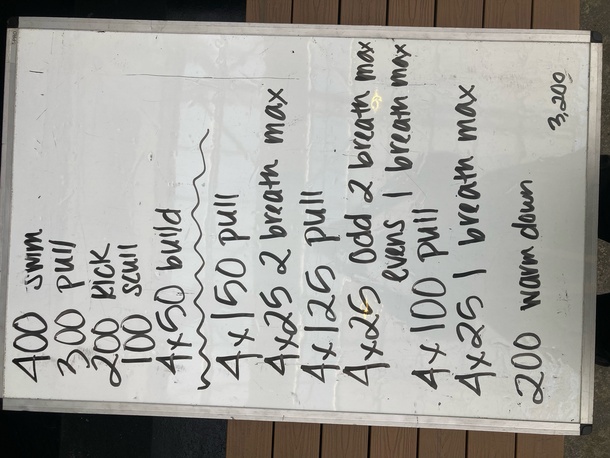 400 swim
300 pull
200 kick
100 scull
4x50 build
4x150 pull
4x25 2 breath max
4x125 pull
4x25 odd 2 breath max
evens 1 breath max
4x100 pull
4x25 1 breath max
200 warm down
3,200